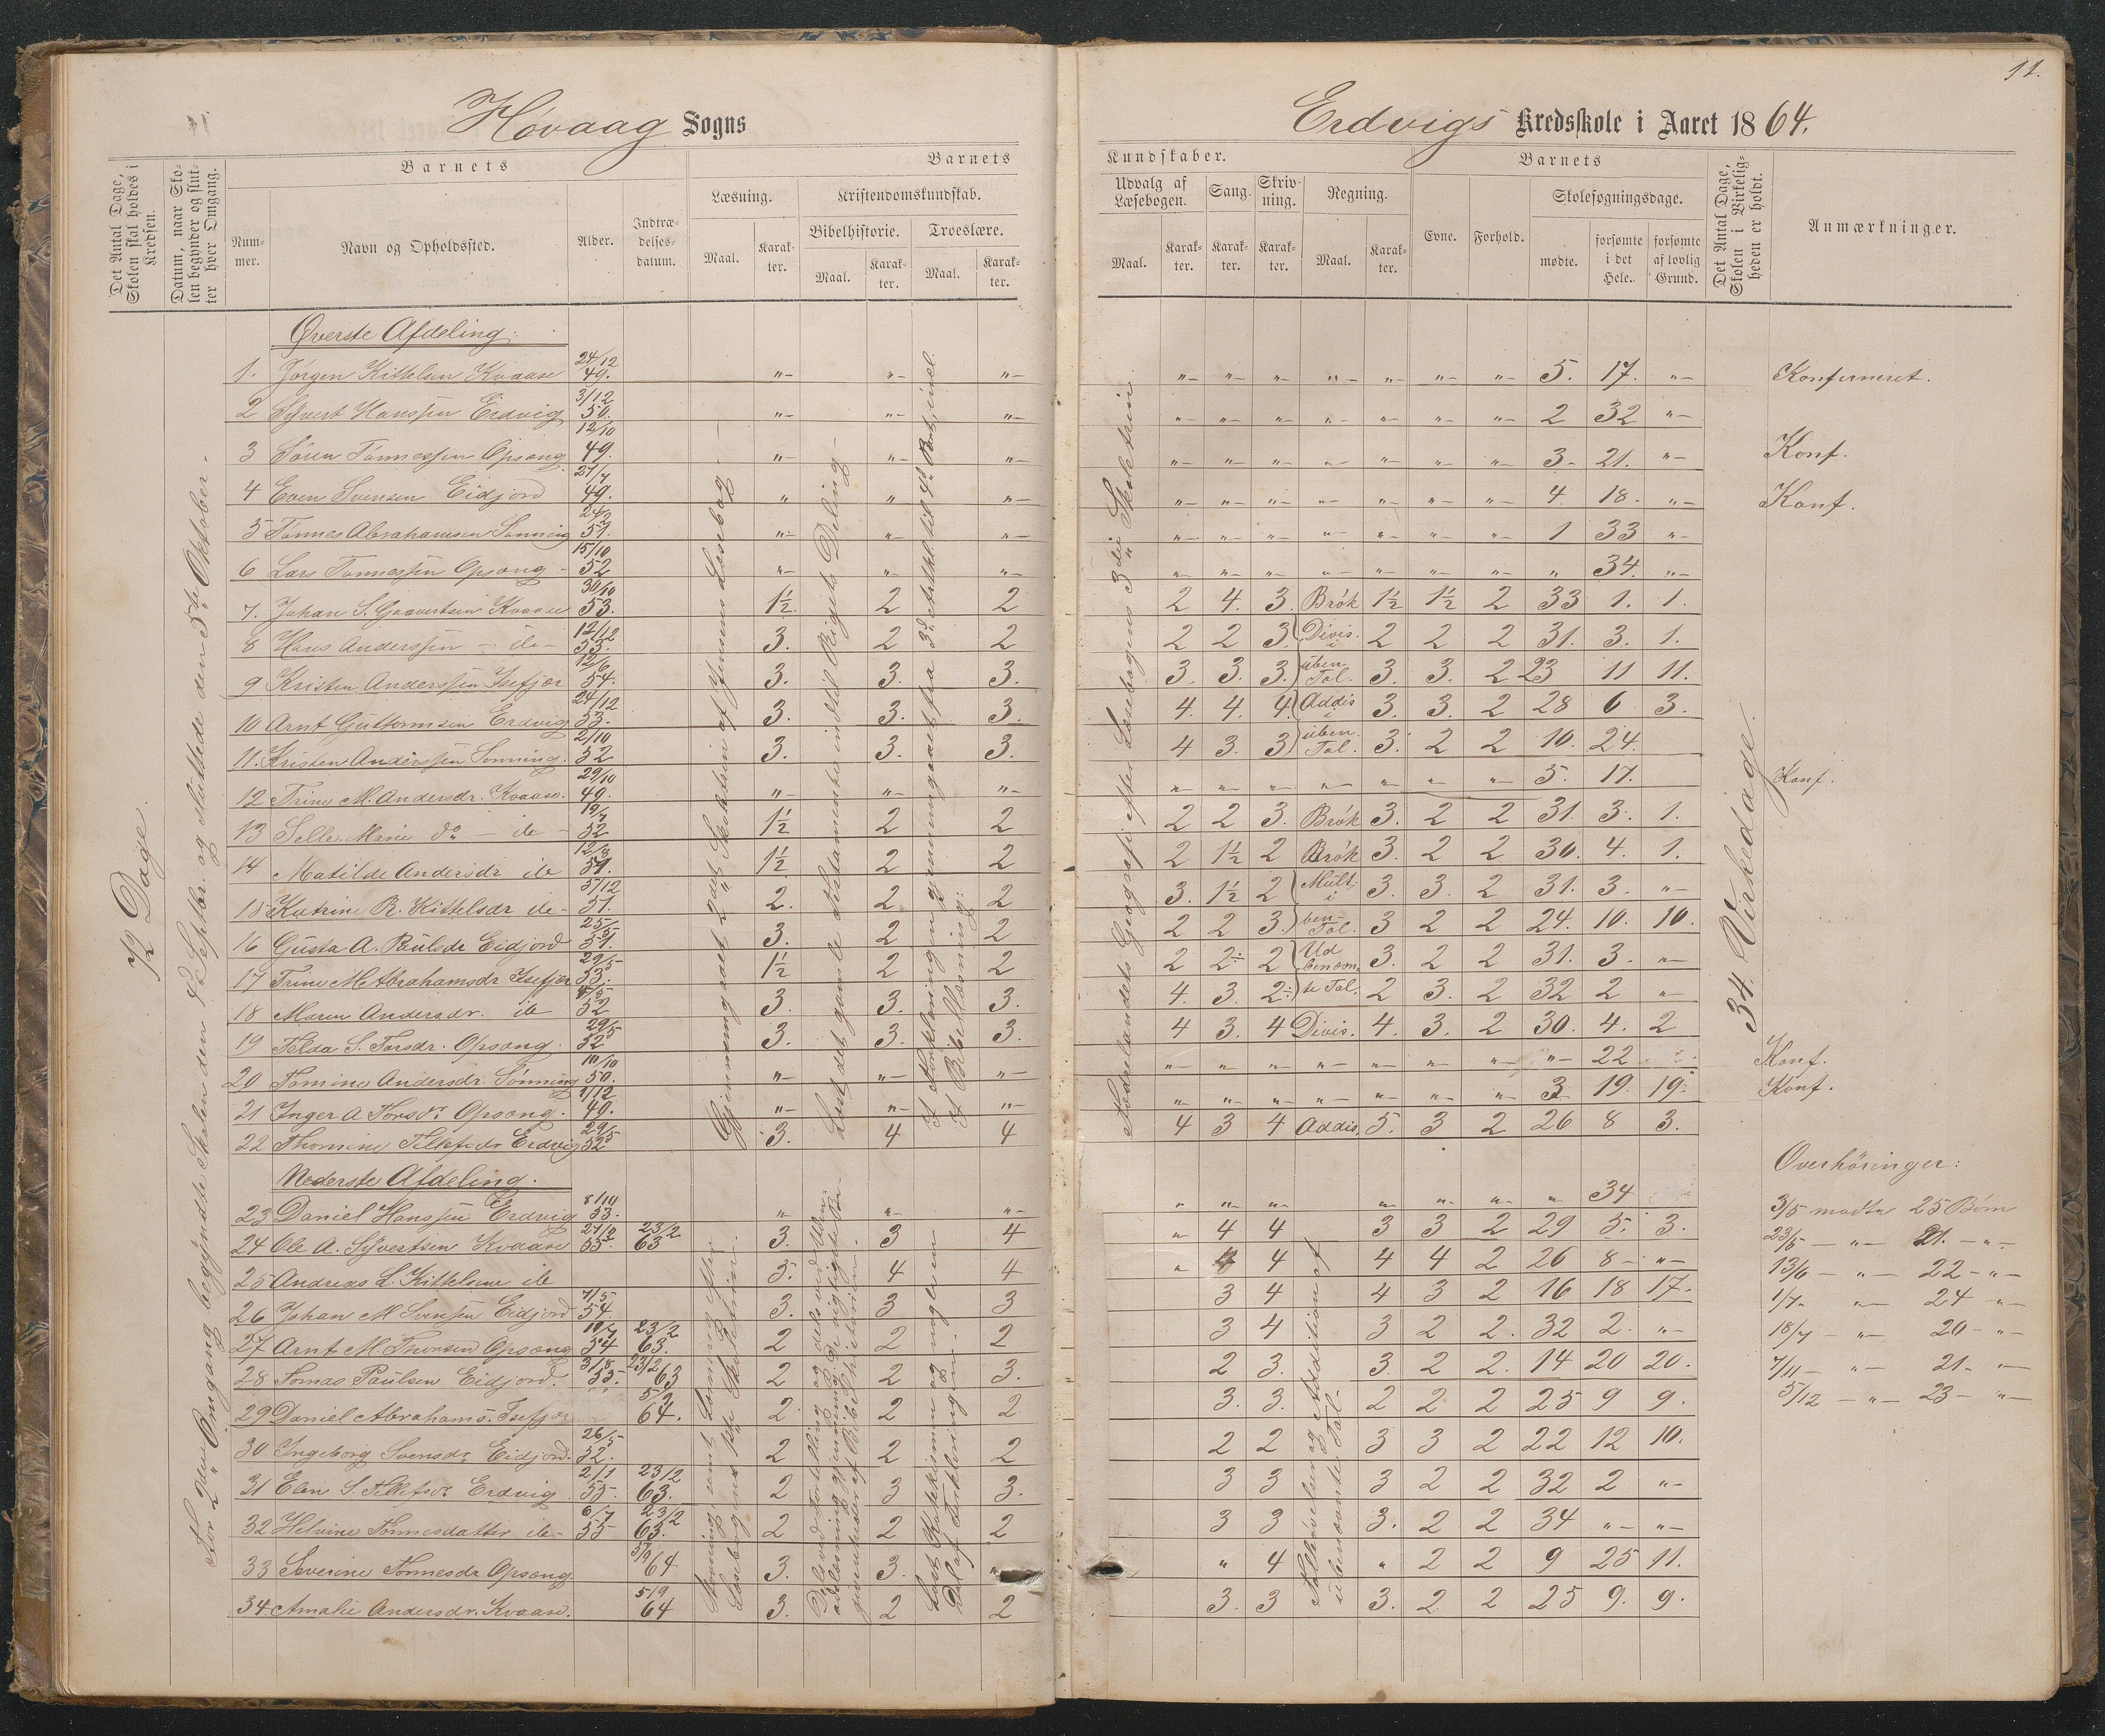 11.
Høvaag Sogns
Erdvigs Kredsskole i Aaret 1864.
Det Antal Dage, Skolen skal holdes i Kredsen.
Datum, naar Skolen begynder og slutter hver Omgang.
Barnets
Nummer.
Navn og Opholdssted.
Alder.
Indtrædelsesdatum.
Barnets
Læsning.
Maal.
Karakter.
Kristendomskundskab.
Bibelhistorie.
Maal.
Karakter.
Troeslære.
Maal.
Karakter.
Kundskaber.
Udvalg af Læsebogen.
Maal.
Karakter.
Sang.
Karakter.
Skrivning.
Karakter.
Regning.
Maal.
Karakter.
Barnets
Evne.
Forhold.
Skolesøgningsdage.
mødte.
forsømte i det Hele.
forsømte af lovlig Grund.
Det Antal Dage, Skolen i Virkeligheden er holdt.
Anmærkninger.
72 Dage.
Omgang begyndte Skolen den 9d Septbr. og sluttede den 5te Oktober.
Gjennemgaaet 2det Skoletrin af Jensens Læsebog
Læst det gamle Testamente indtil Rigets Deling
Fædrelandets Geografi efter Læsebogens 3die Skoletrin.
34 Virkedage.
Øverste Afdeling.
1. Jørgen Kittelsen Kvaase 24/12 49. "- "- "- "- "- "- "- "- "- "- 5. 17. "- Konfirmeret.
2 Syvert Hanssen Erdvig 3/12 50. "- "- "- "- "- "- "- "- "- "- 2 32 "-
3 Søren Tønnessen Opsang 12/10 49. "- "- "- "- "- "- "- "- "- "- 3- 21. "- Konf.
4 Even Svensen Eidjord 27/7 49. " " "- "- "- "- "- "- "- "- 4 18. "- Konf.
5 Tønnes Abrahamsen Sønning 24/2 51. "- "- "- "- "- "- "- "- "- "- 1 33 "-
6 Lars Tønnessen Opsang 15/10 52 "- "- "- "- "- "- "- "- "- "- " 34. "-
7. Johan S. Gaavertsen Kvaase 30/10 53. 1½ 2 2 2 4. 3. Brøk 1½ 1½ 2 33 1. 1.
8 Hans Anderssen - ib- 12/12 53. 3. 2 2 2 2 3. Divis. i 2 2 2 31. 3. 1.
9 Kristen Anderssen Isefjær 12/6 54. 3. 3. 3. 3. 3. 3. uben. Tal. 3. 3. 2 23 11 11.
10 Arnt Guttormsen Erdvig 24/12 53. 3. 3. 3. 4. 4. 4. Addis i 3. 3. 2 28 6 3.
11. Kristen Anderssen Sønning. 2/10 52 3. 3. 3. 4 3. 3 uben. Tal. 3. 2 2 10. 24.
12 Trine M. Andersdr. Kvaase. 29/10 49. "- "- "- " "- "- "- " "- "- 5. 17. Konf.
13 Selle Marie do - ib- 19/7 52 1½ 2 2 2 2 3. Brøk 3. 2 2 31. 3. 1.
14 Matilde Andersdr ib 12/3 51. 1½ 2 2 2 1½ 2 Brøk 3. 2 2 30. 4. 1.
15 Katrine R. Kittelsdr ib- 5/12 51. 2. 2 2 3. 1½ 2 Mult. i 3. 3. 2 31. 3. "-
16 Gusta A. Paulsdr Eidjord 25/5 51. 3. 2 2 2 2 3. ben- Tal. 3 2 2 24. 10. 10.
17 Trine M Abrahamsdr Isefjær 29/5 53. 1½ 2 2 2 2÷ 2 3. 2 2 31. 3. "-
18 Maren Andersdr. ib 52 3. 3. 3. 4. 3. 2÷ 2 3. 2 32 2 "
19 Telda S. Torsdr. Opsang. 29/5 52 3. 3. 3. 4 3. 4 Divis. 4. 3. 2 30. 4. 2
20 Tomine Andersdr. Sønning 10/10 50. "- "- "- "- "- "- "- "- "- "- "- 22 Konf.
21 Inger A Torsdr Opsang. 1/12 49. "- "- "- " "- "- "- "- "- " 3 19. 19. Konf.
22 Thomine Tellefsdr Erdvig 29/5 52 3. 4 4 4 3 4 Addis. 5. 3 2 26 8 3.
Nederste Afdeling.
23 Daniel Hanssen Erdvig 8/10 53. "- "- "- " "- "- "- "- "- " 34
24 Ole A. Syvertsen Kvaase 55. 23/2 63 3. 3 4 " 4 4 3 3 2 29 5. 3.
25 Andreas L. Kittelsen ib 3. 4 4 " 4 4 4 4 2 26 8 - "-
26 Johan M Svensen Eidjord 7/5 54. 3. 3 3 3 4 4 3 2 16 18 17.
27 Arnt M. Thorsen Opsang 54 23/2 63. 2 2 2 3 4 3 2 2. 32 2. "-
28 Tomas Paulsen Eidjord. 3/8 55. 23/2 63 2 2 3. 2 3. 3. 2 2. 14 20 20.
29 Daniel Abrahams. Isefjær 5/9 64. 2 2 2 3. 3. 2 2 2 25 9 9.
30 Ingeborg Svensdr Eidjord. 26/5 52. 2 2 2 2 2 3 3 2 22 12 10.
31 Elen S. Tellefsdr Erdvig 2/1 55. 23/2 63. 2 3 3. 3 3 3 2 2 32 2 "-
32 Helvine Tønnesdatter ib- 6/7 55 23/2 63. 2 2 2 3 3 3. 2 2 34 "- "-
33 Severine Tønnesdr Opsang. 5/9 64 3. 3. " " 4 " 2 2 9 25 11.
34 Amalie Andersdr. Kvaase. 5/9 64 3. 2 2 3. 3 3. 2 2 25 9. 9.
Talskrivning og Addition af ubenævnte Tal.
Overhøringer:
3/5 mødte 25 Børn
23/5 - "- 21. - "-
13/6 - "- 22 - "-
1/7. "- 24 - "-
18/7 - "- 20 - "-
7/11 - "- 21. "-
5/12 - "- 23 - "-